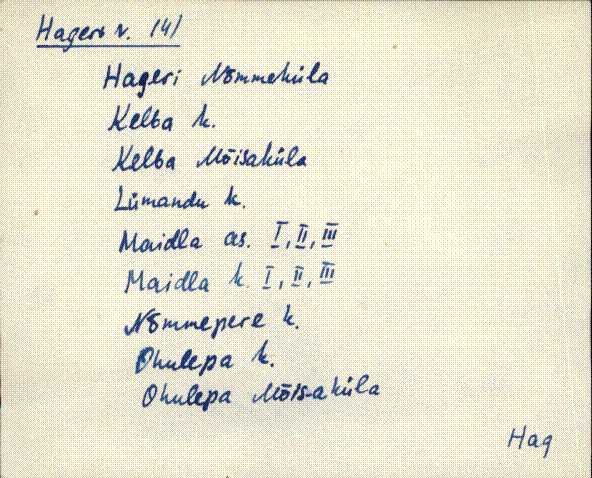 Hageri v. 141
Hageri Nõmmeküla
Kelba k.
Kelba Mõisaküla
Lümandu k.
Maidla as. I, II, III
Maidla k. I, II, III
Nõmmepere k.
Ohulepa k.
Ohulepa Mõisaküla
Hag